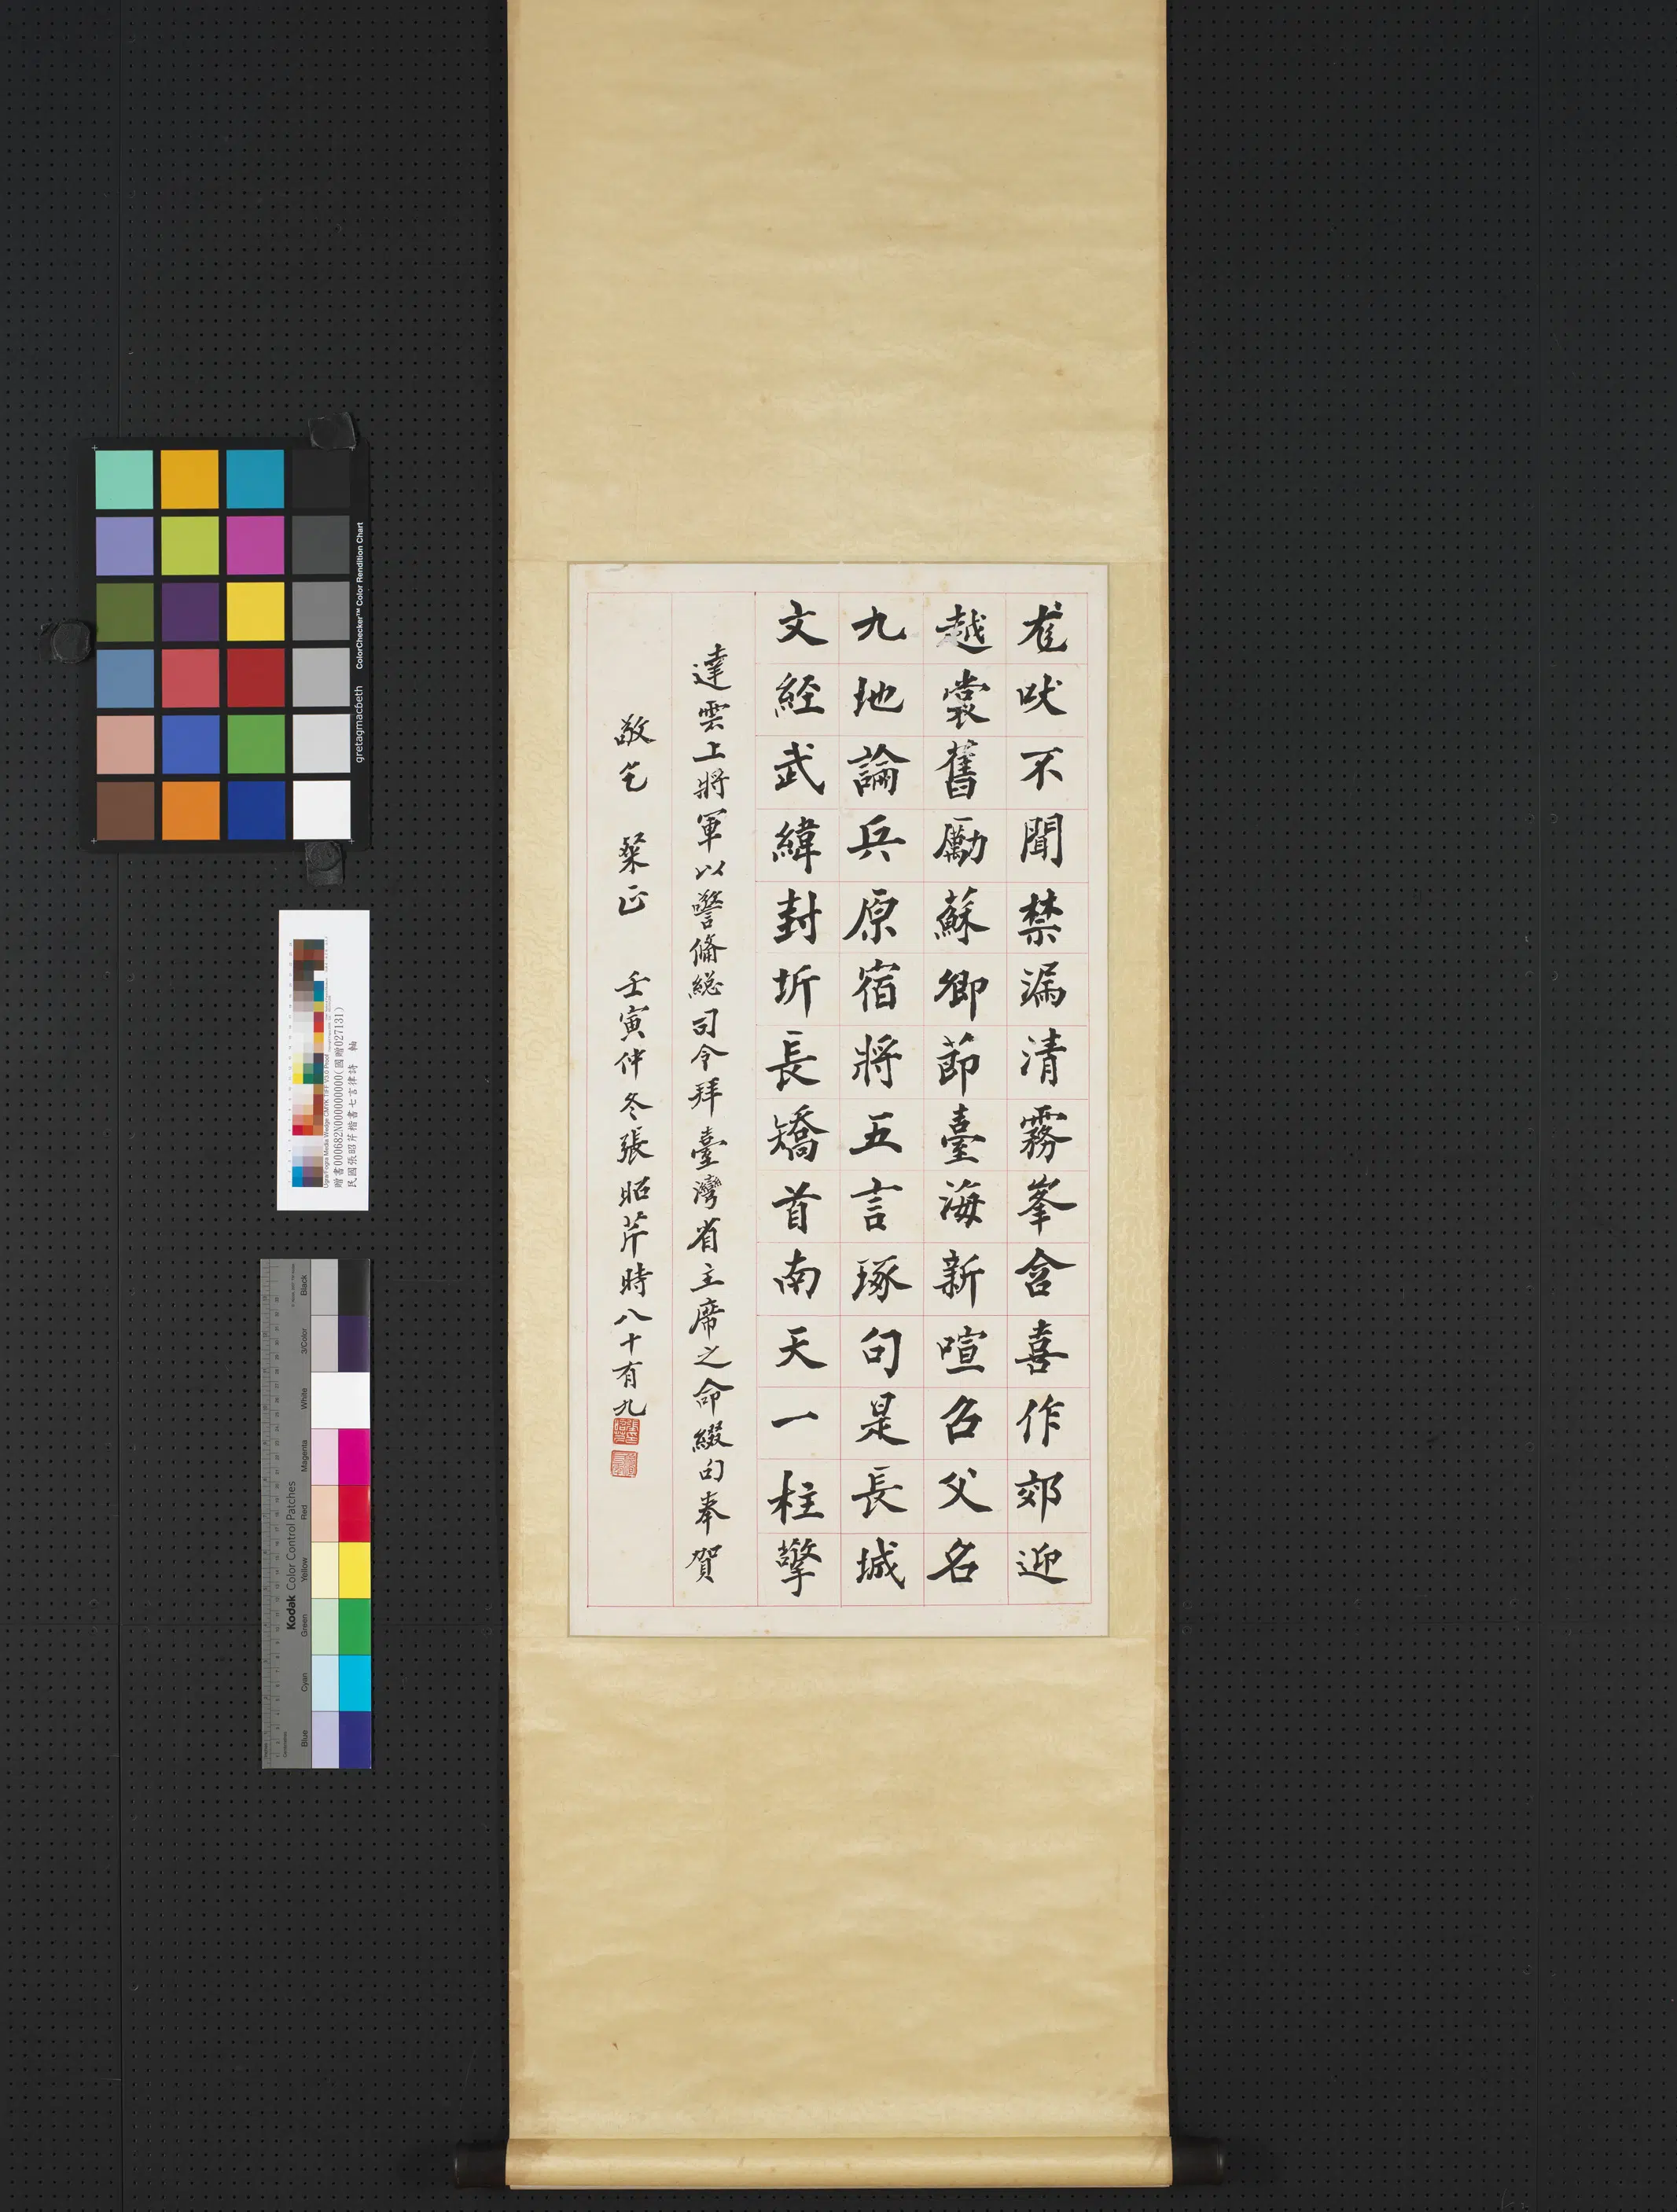 尨吠不聞禁漏清霧峯含喜作郊迎
越裳舊勵蘇卿節臺海新喧召父名
九地論兵原宿將五言琢句是長城
文経武緯封圻長矯首南天一柱擎
達雲上將軍以警備總司令拜臺灣省主席之命綴句奉賀
敬乞 粲正 壬寅仲冬張昭芹時八十有九
ColorChecker™ Color Rendition Chart
gretagmacbeth
Ugra/Fogra Media Wedge CMYK TIFF V3.0 Proof
贈書000682N000000000(國贈027131)
民國張昭芹楷書七言律詩 軸
Kodak Color Control Patches
Blue
Cyan
Green
Yellow
Red
Magenta
White
3/Color
Black